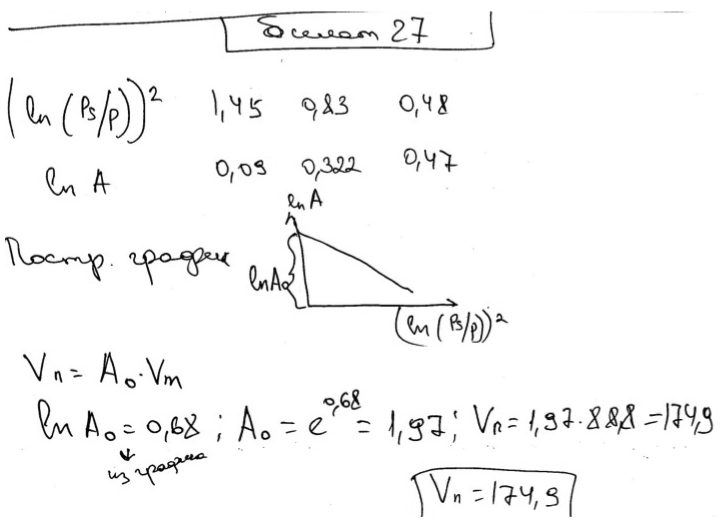 Билет 27
(ln (Ps/p))² 1,45 0,83 0,48
ln A 0,09 0,322 0,47
ln A
Постр. график
lnA₀
(ln (Ps/p))²
Vп = A₀·Vm
ln A₀ = 0,68 ; A₀ = e^0,68 = 1,97; Vп = 1,97·88,8 = 174,9
из графика
Vп = 174,9